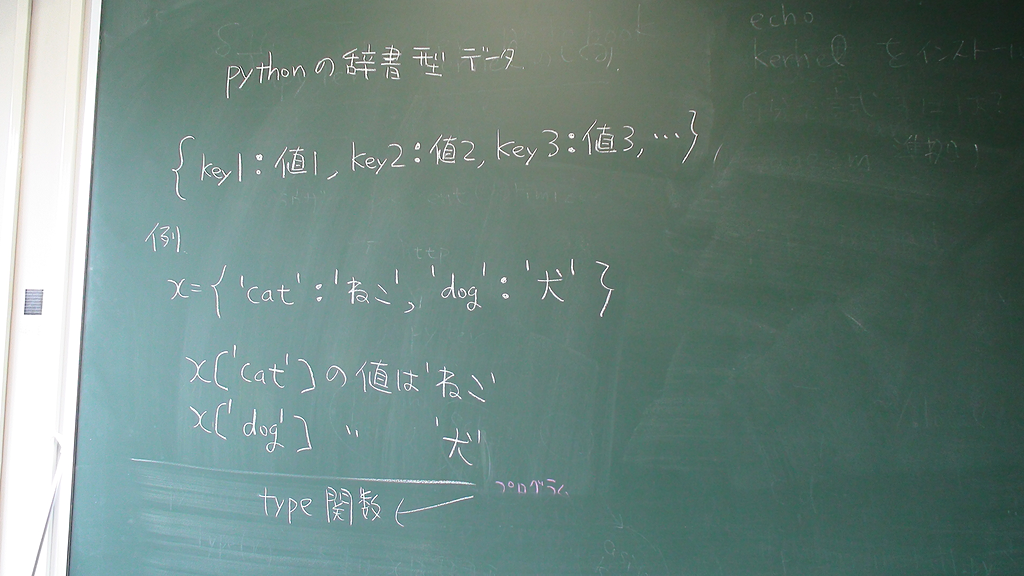 pythonの辞書型データ
{key1:値1, key2:値2, key3:値3, …},
例.
x={'cat':'ねこ', 'dog':'犬'}
x['cat']の値は'ねこ'
x['dog'] 〃 '犬'
type関数
プログラム
echo
kernel をインストール